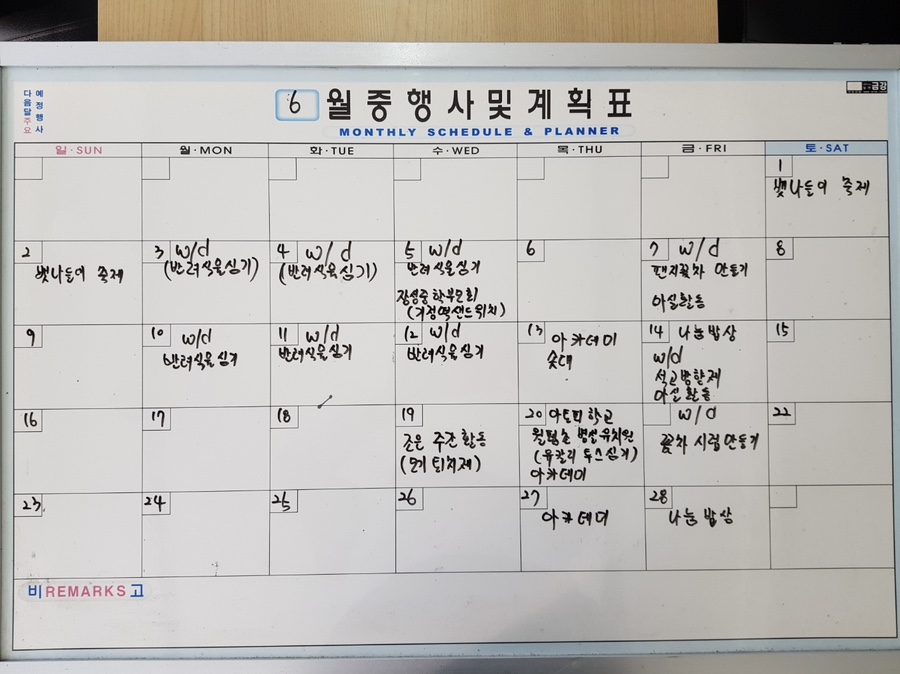 예정행사
다음달주요
6 월중행사및계획표
MONTHLY SCHEDULE & PLANNER
금강
일·SUN 월·MON 화·TUE 수·WED 목·THU 금·FRI 토·SAT
1
벚나들이 축제
2
벚나들이 축제
3 w/d
(반려식물심기)
4 w/d
(반려식물심기)
5 w/d
반려식물심기
장성중학부모회
6
7 w/d
팬지꽃차 만들기
야실활동
8
9
10 w/d
반려식물심기
11 w/d
반려식물심기
12 w/d
반려식물심기
13 아카데미
솟대
14 나눔밥상
w/d
석고방향제
야실활동
15
16
17
18
19
주간활동
(모기 퇴치제)
20 아토피학교
병설유치원
아카데미
w/d
꽃차 시럽만들기
22
23
24
25
26
27
아카데미
28
나눔밥상
비REMARKS고